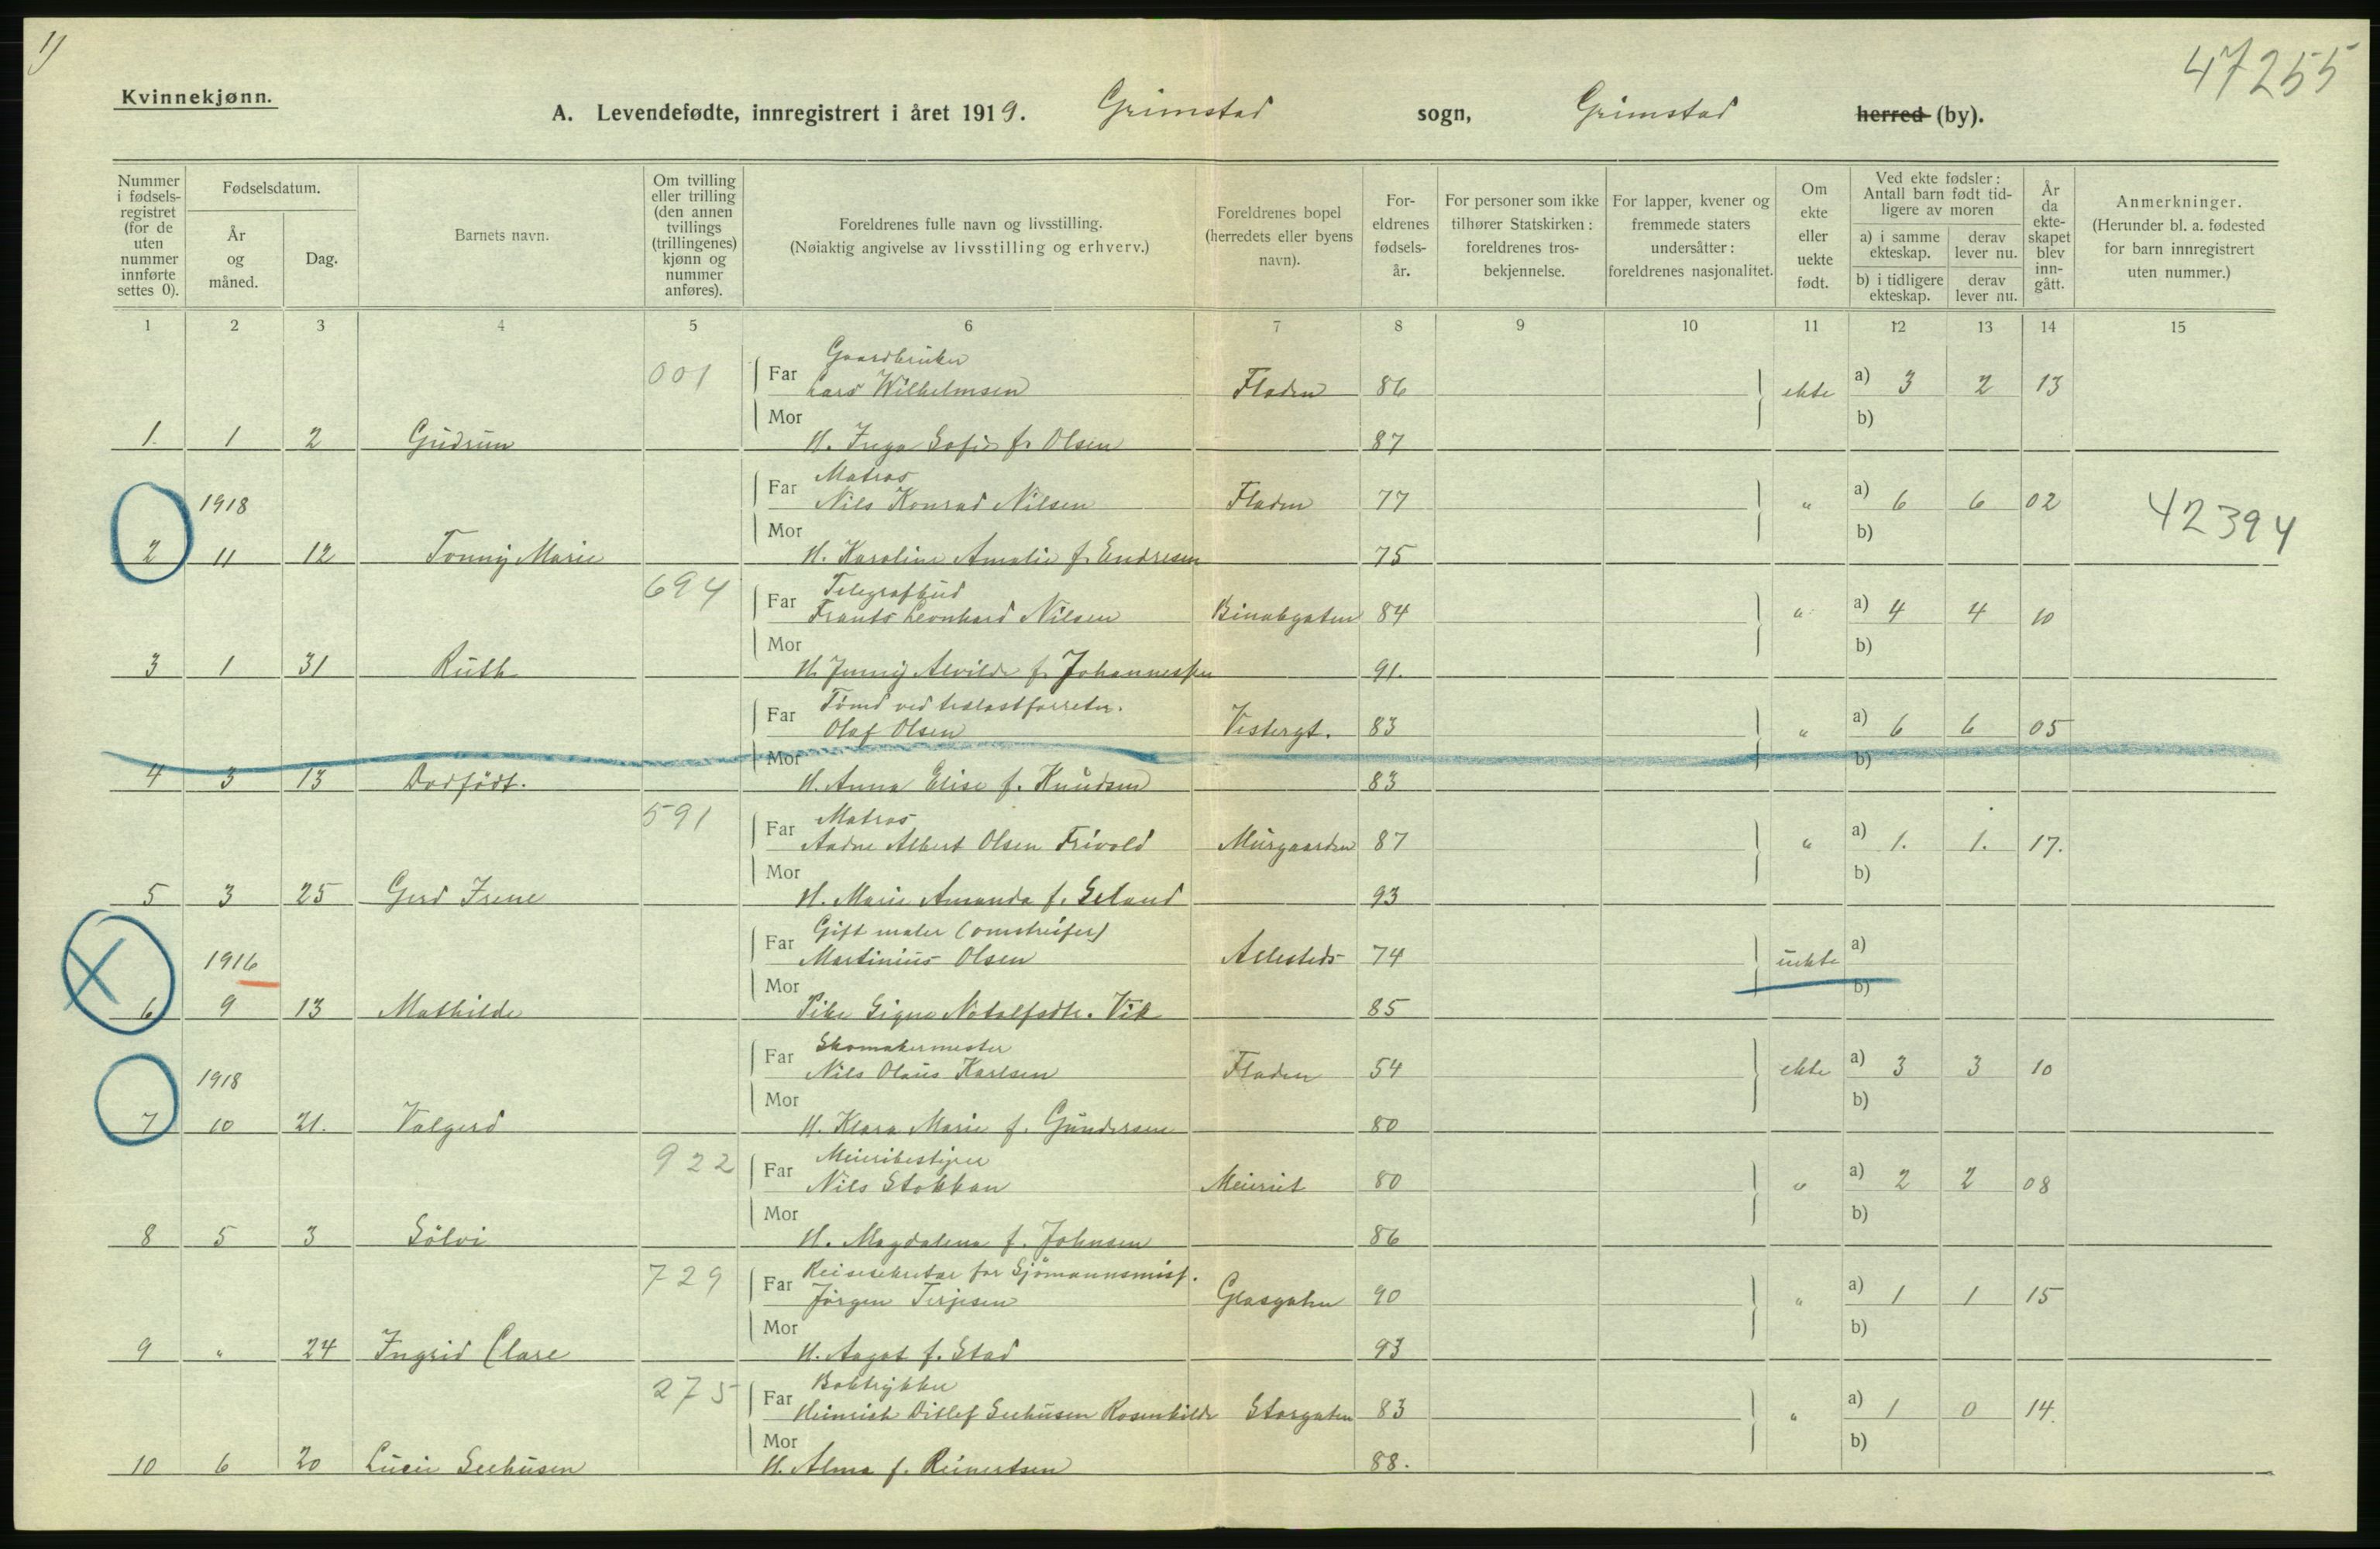 1)
47255
Kvinnekjønn.
A. Levendefødte, innregistrert i året 1919. Grimstad sogn, Grimstad herred (by).
Nummer i fødselsregistret (for de uten nummer innførte settes 0).
Fødselsdatum.
År og måned.
Dag.
Barnets navn.
Om tvilling eller trilling (den annen tvillings (trillingenes) kjønn og nummer anføres).
Foreldrenes fulle navn og livsstilling.
(Nøiaktig angivelse av livsstilling og erhverv.)
Foreldrenes bopel (herredets eller byens navn).
Foreldrenes fødselsår.
For personer som ikke tilhører Statskirken: foreldrenes trosbekjennelse.
For lapper, kvener og fremmede staters undersåtter: foreldrenes nasjonalitet.
Om ekte eller uekte født.
Ved ekte fødsler: Antall barn født tidligere av moren
a) i samme ekteskap. derav lever nu.
b) i tidligere ekteskap. derav lever nu.
År da ekteskapet blev inngått.
Anmerkninger.
(Herunder bl. a. fødested for barn innregistrert uten nummer.)
1 2 3 4 5 6 7 8 9 10 11 12 13 14 15
Gaardbruker
001 Far Lars Wilhelmsen Fladen 86 ekte a) 3 2 13
Mor b)
1. 1 2 Gudrun H. Inga Sofie f. Olsen 87
Matros
1918 Far Nils Konrad Nilsen Fladen 77 " a) 6 6 02 42394
Mor b)
2 11 12 Tonny Marie H. Karoline Amalie f. Endresen 75
694 Telegrafbud
Far Frants Leonhard Nilsen Binabgaten 84 " a) 4 4 10
Mor b)
3 1 31 Ruth H. Jenny Alvilde f. Johannessen 91.
Tømd ved
Far Olaf Olsen Vestergt. 83 " a) 6 6 05
Mor b)
4 3 13 Dødfødt. H. Anna Elise f. Knudsen 83
591 Matros
Far Aadne Albert Olsen Frivold Murgaarden 87 " a) 1. 1. 17.
Mor b)
5 3 25 Gerd Irene H. Marie Amanda f. Geland 93
Gift maler (omstreifer)
1916 Far Martinius Olsen Allesteds 74 uekte a)
Mor b)
6 9 13 Mathilde Pike Signe Notolfsdtr. Vik 85
Skomakermester
1918 Far Nils Olaus Karlsen Fladen 54 ekte a) 3 3 10
Mor b)
7 10 21. Valgerd H. Klara Marie f. Gundersen 80
922 Meieribestyrer
Far Nils Stokkan Meieriet 80 " a) 2 2 08
Mor b)
8 5 3 Sölvi H. Magdalena f. Johnsen 86
729 Reisesekretær for Sjømannsmisj.
Far Jørgen Terjesen Glasgaten 90 " a) 1 1 15
Mor b)
9 " 24 Ingrid Clare H. Aagot f. Stad 93
275 Boktrykker
Far Heinrich Ditlef Seehusen Rosenkilde Storgaten 83 " a) 1 0 14.
Mor b)
10 6 20 Lucie Seehusen H. Alma f. Reinertsen 88.